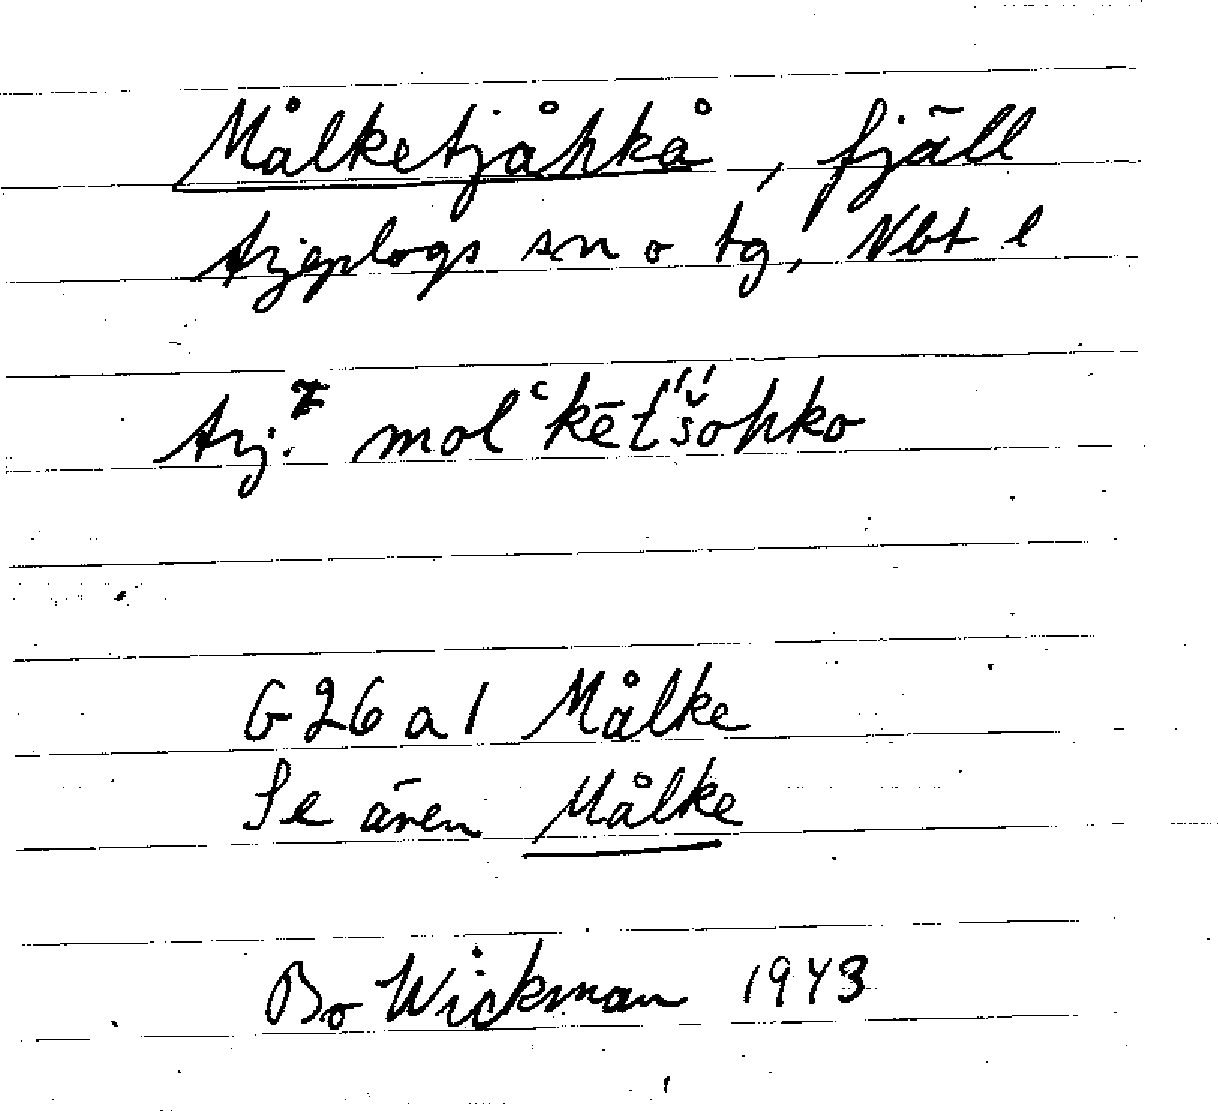 Målketjåhkå, fjäll
Arjeplogs sn o tg, Nbt l
Arj.
G 26 a 1 Målke
Se även Målke
Bo Wickman 1943